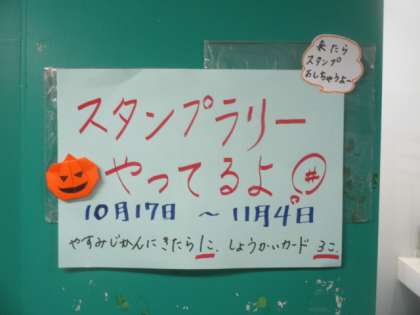 来たら
スタンプ
おしちゃうよ〜
スタンプラリー
やってるよ
10月17日 〜 11月4日
やすみじかんにきたら1こ. しょうかいカード 3こ.